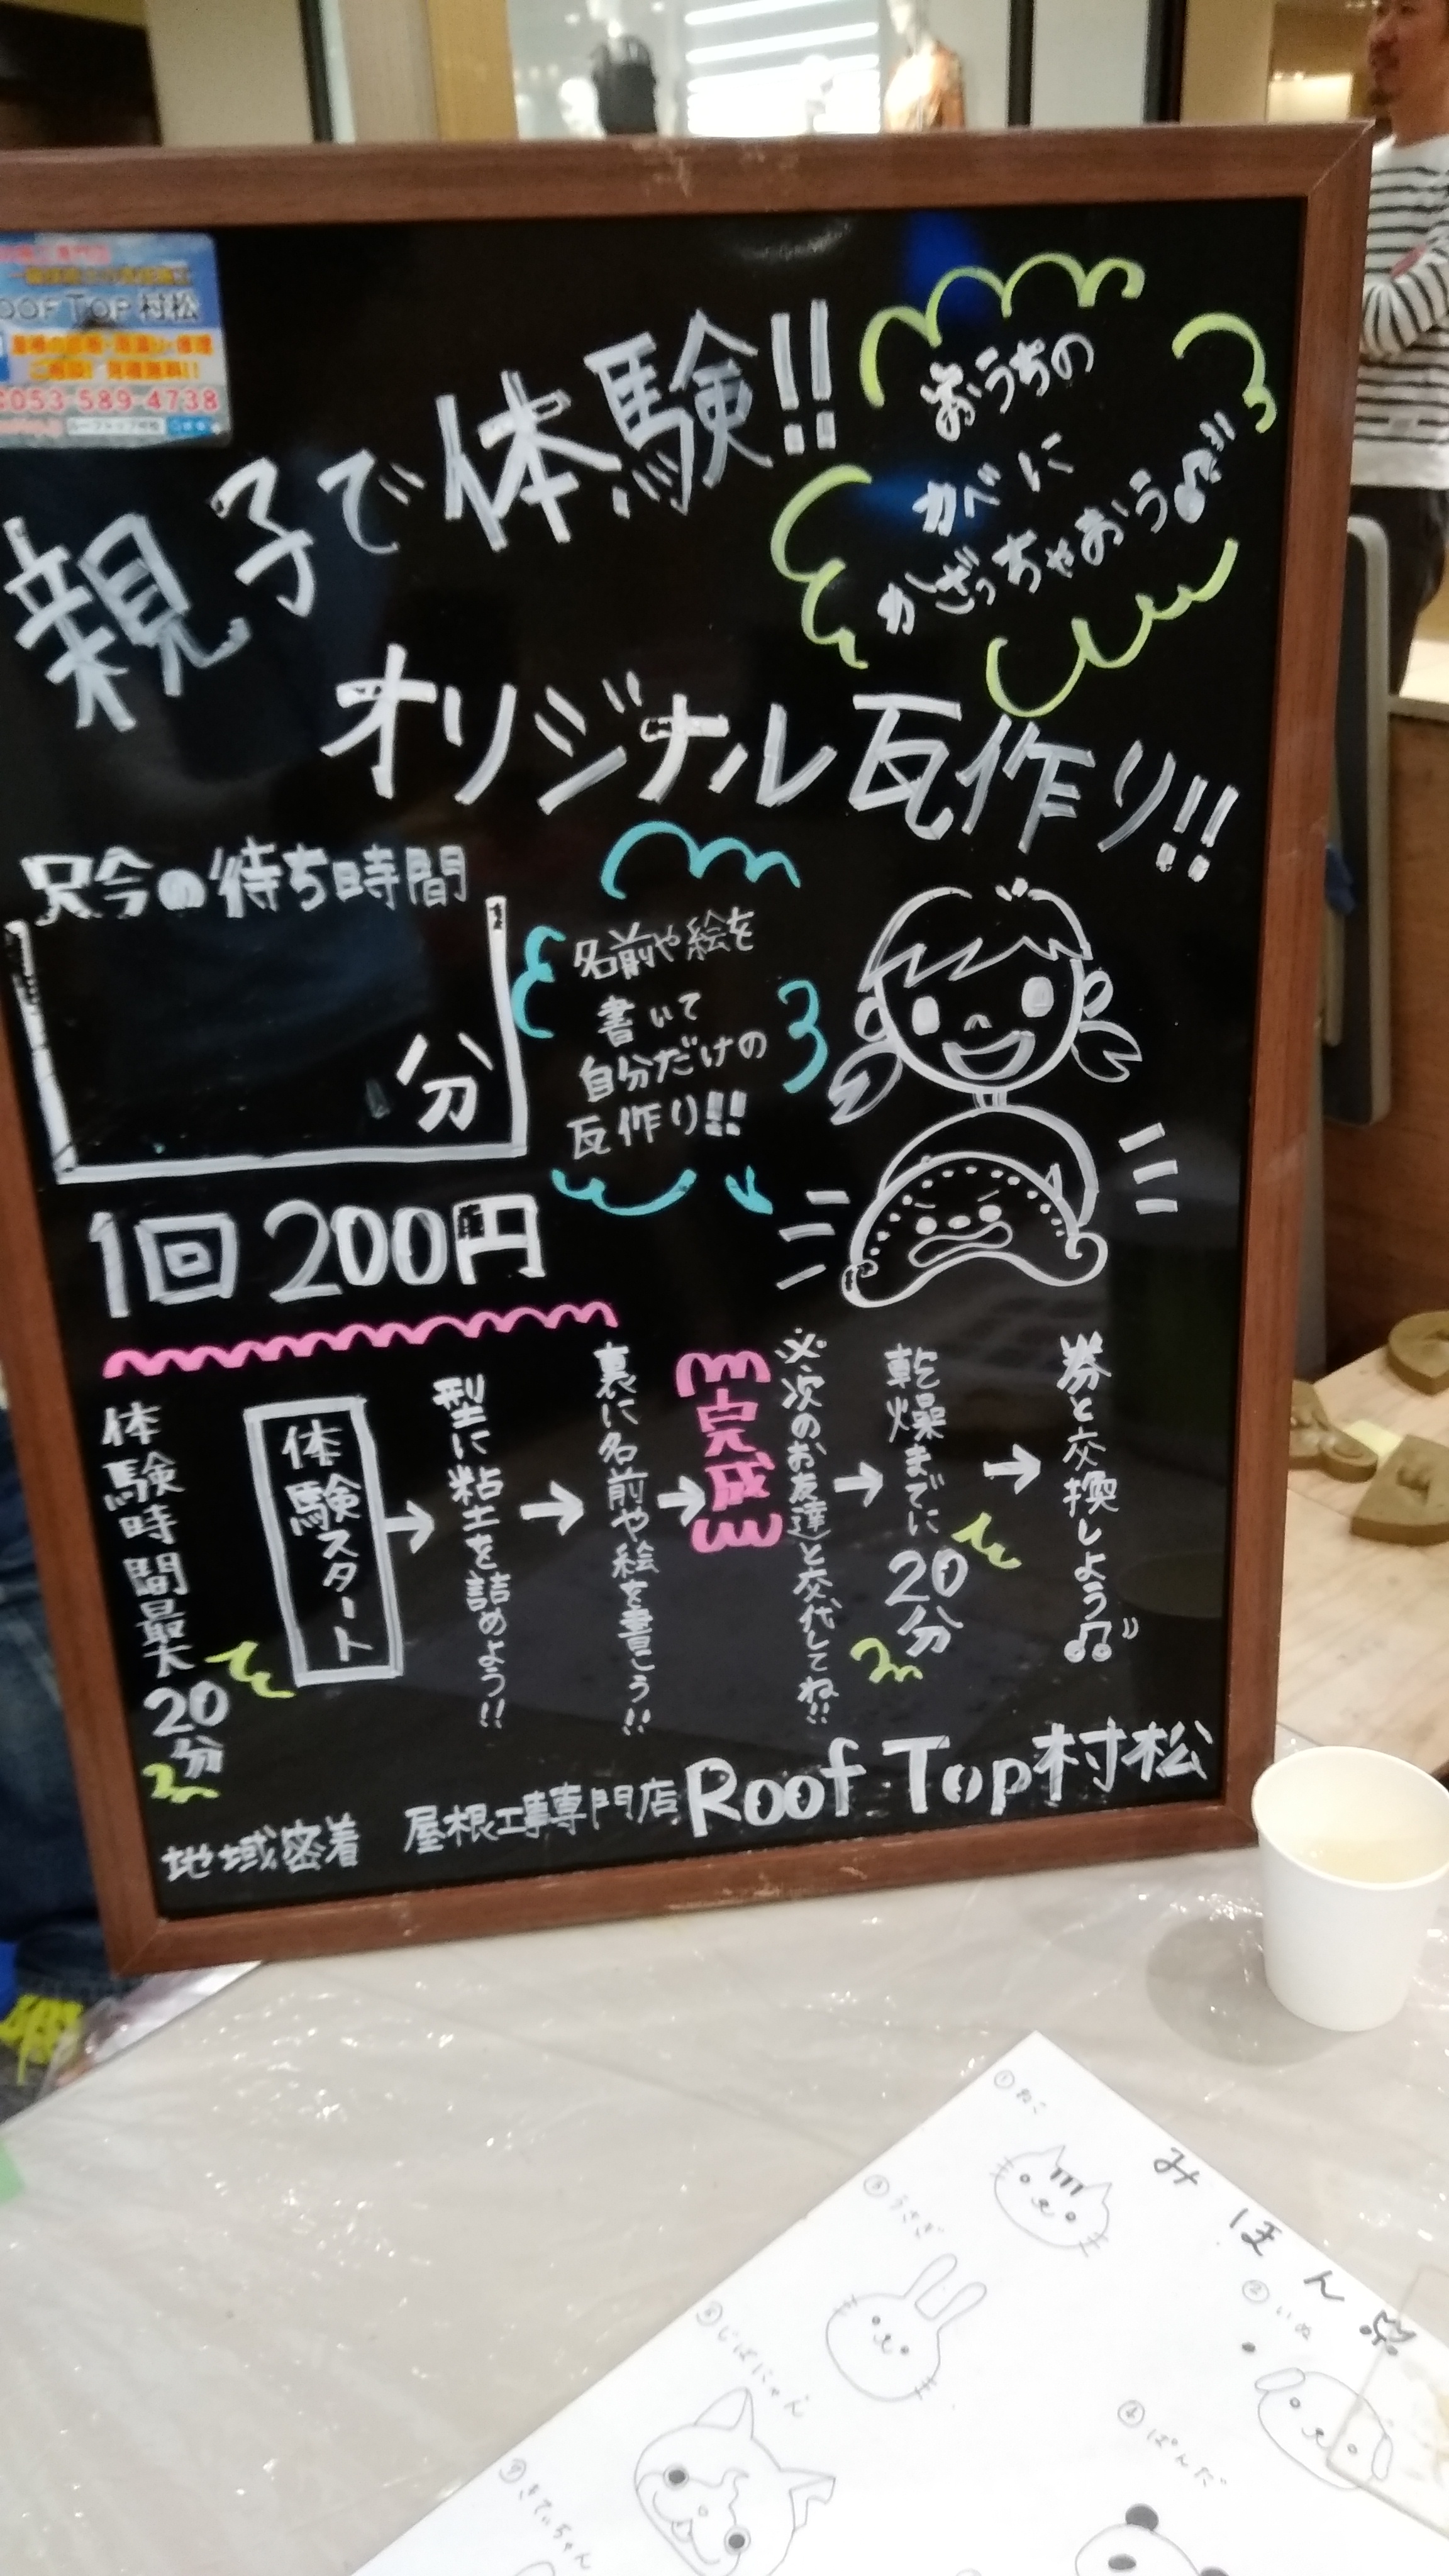 ROOF TOP 村松
ご相談! 見積無料!!
053-589-4738
親子で体験!!
おうちの
かべに
かざっちゃおう♫
オリジナル瓦作り!!
只今の待ち時間
分
名前や絵を
書いて
自分だけの
瓦作り!!
1回200円
体験時間最大20分
体験スタート
→
型に粘土を詰めよう!!
→
裏に名前や絵を書こう!!
→
完成
※次のお友達と交代してね!!
→
乾燥までに20分
→
券と交換しよう♫
地域密着 屋根工事専門店 Roof Top村松
みほん
①ねこ
②いぬ
③うさぎ
④ぱんだ
⑤じばにゃん
⑦きてぃちゃん